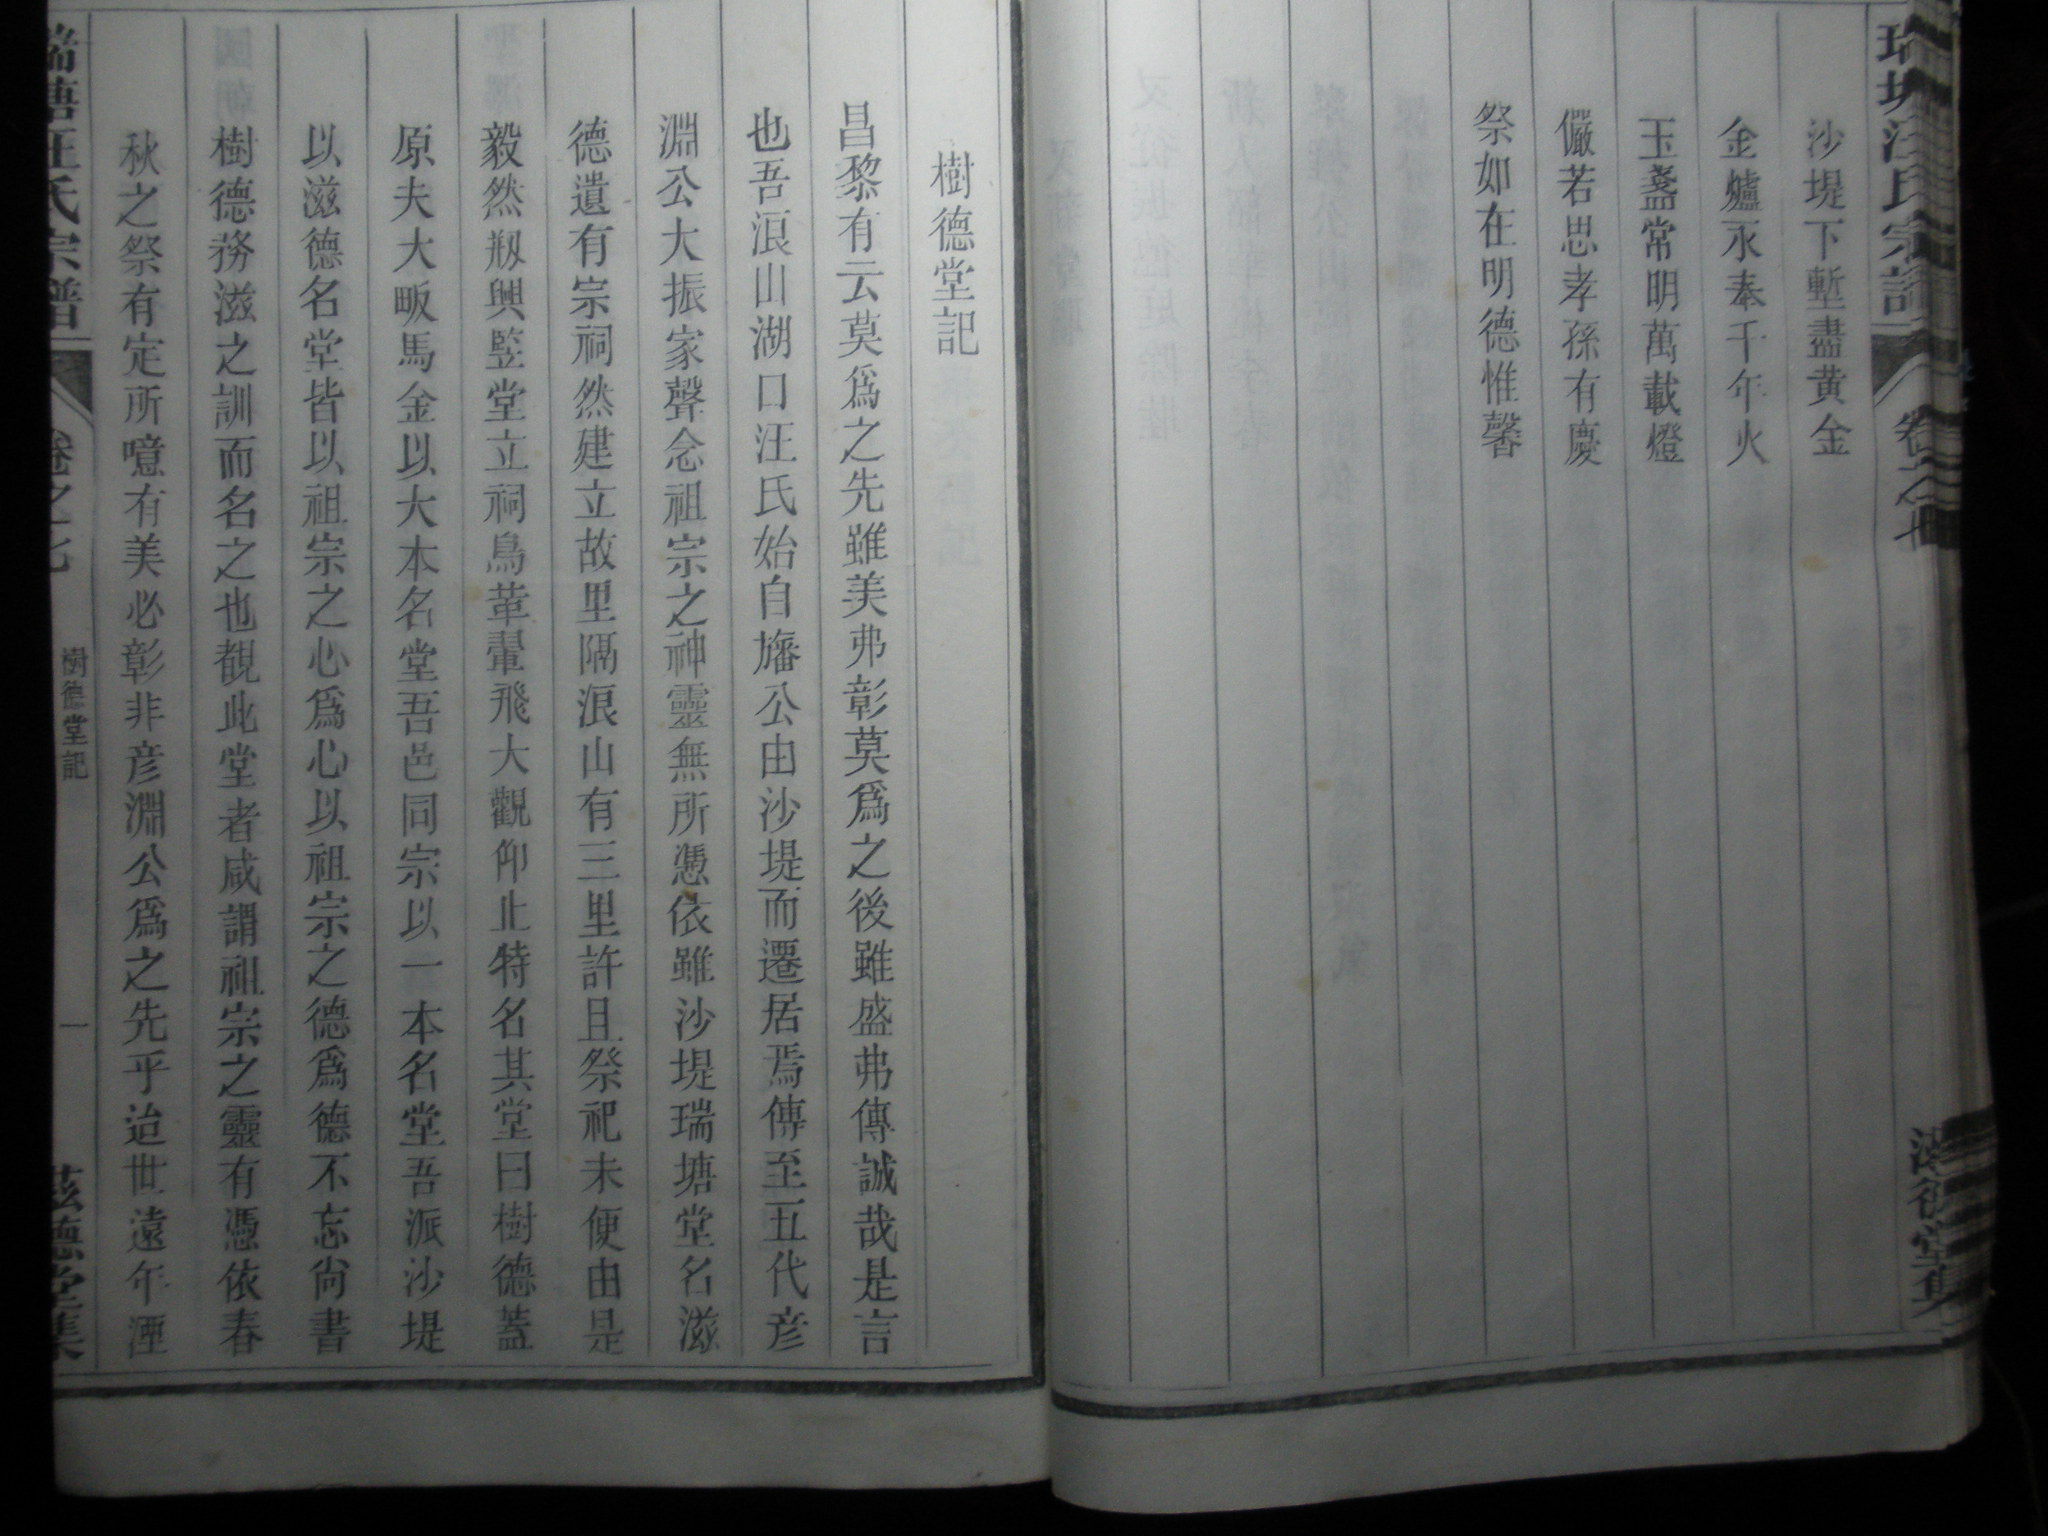 沙堤下塹盡黄金
金爐永奉千年火
玉盞常明萬載燈
儼若思孝孫有慶
祭如在明德惟馨
樹德堂記
昌黎有云莫爲之先雖美弗彰莫爲之後雖盛弗傳誠哉是言
也吾浪山湖口汪氏始自旛公由沙堤而遷居焉傳至五代彦
淵公大振家聲念祖宗之神靈無所憑依雖沙堤瑞塘堂名滋
德遺有宗祠然建立故里隔浪山有三里許且祭祀未便由是
毅然剏興監堂立祠鳥革翬飛大觀仰止特名其堂曰樹德蓋
原夫大畈馬金以大本名堂吾邑同宗以一本名堂吾派沙堤
以滋德名堂皆以祖宗之心爲心以祖宗之德爲德不忘尚書
樹德務滋之訓而名之也覩此堂者咸謂祖宗之靈有憑依春
秋之祭有定所噫有美必彰非彦淵公爲之先乎迨世遠年湮
瑞塘汪氏宗譜
卷之七
樹德堂記
一
滋德堂集